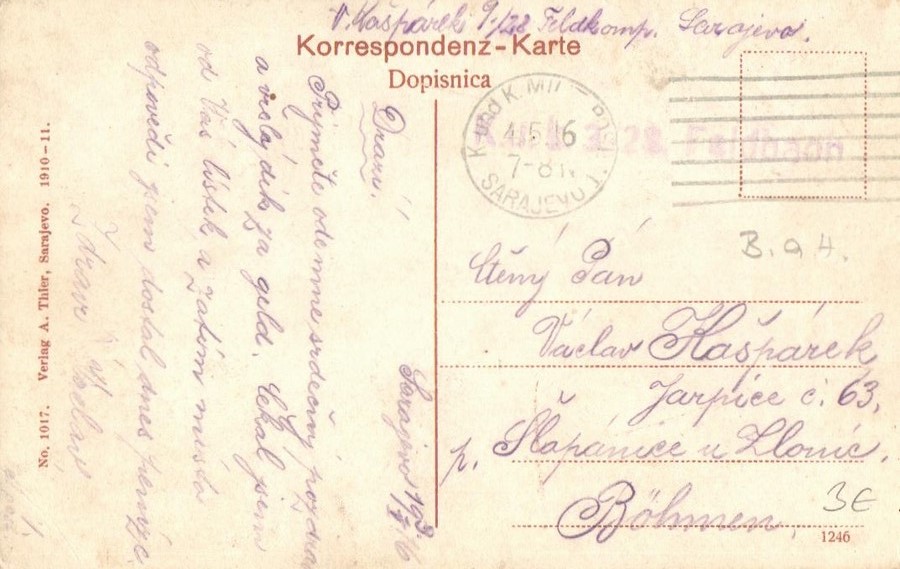 V. Kašpárek 9./28 Feldkomp. Sarajevo.
Korrespondenz-Karte
Dopisnica
K. und K. MIL
4 5 16
7-8
SARAJEVO 1.
K. u. k. 28. Feldbaon
B. a 4.
Ctěný Pán
Václav Kašpárek
Jarpice č. 63.
p. Šlapánice u Zlonic.
Böhmen.
3€
1246
Sarajevo 193./V 16
Drazí!
Přijměte odemne srdečný pozdrav
a vřelý dík za geld. Čekal jsem
od Vás lístek, a zatím místo
odpovědi jsem dostal dnes peníze.
Zdraví Václav
No. 1017. Verlag A. Thier, Sarajevo. 1910-11.